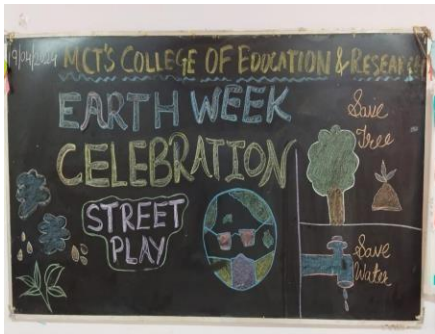 19/04/2024 MCT'S COLLEGE OF EDUCATION & RESEARCH
EARTH WEEK
CELEBRATION
STREET
PLAY
Save
Tree
Save
Water